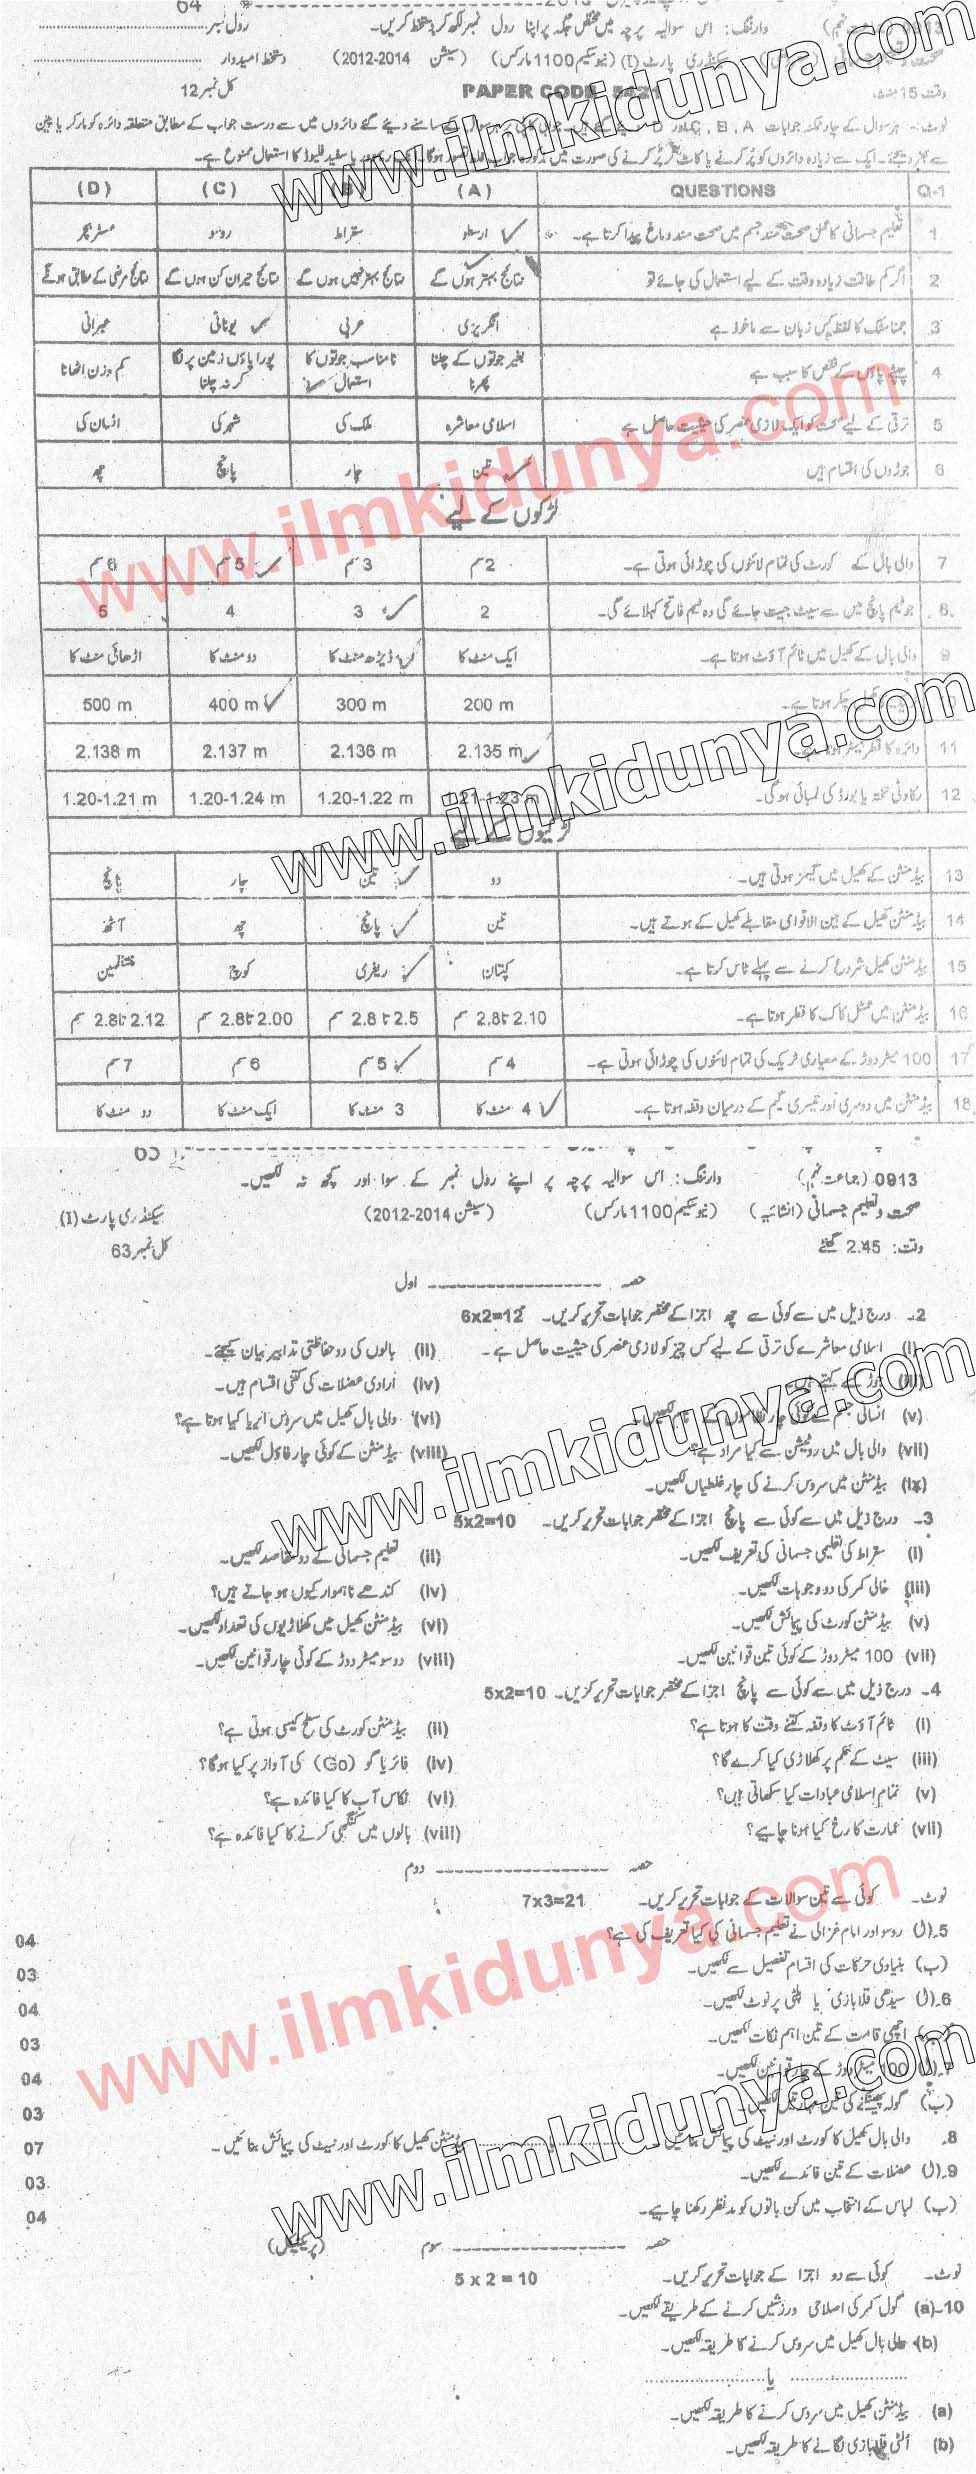 رول نمبر ---- وارننگ: اس سوالیہ پرچہ میں مختص جگہ پر اپنا رول نمبر لکھ کر دستخط کریں۔
دستخط امیدوار ---- (سیشن 2014-2012) (نیو سکیم 1100 مارکس) سیکنڈری پارٹ (I)
کل نمبر 12 PAPER CODE 5421 وقت 15 منٹ
نوٹ:- ہر سوال کے چار ممکنہ جوابات A , B , C اور D دیئے گئے ہیں۔ درست جواب کے مطابق متعلقہ دائرہ کو مارکر یا پین
سے بھر دیجئے۔ ایک سے زیادہ دائروں کو پُر کرنے یا کاٹ کر پُر کرنے کی صورت میں مذکورہ جواب غلط تصور ہوگا۔ یا سفید فلیوڈ کا استعمال ممنوع ہے۔
Q-1 QUESTIONS (A) (B) (C) (D)
1 تعلیم جسمانی کا عمل صحت مند جسم میں صحت مند دماغ پیدا کرتا ہے۔ ارسطو سقراط روسو
2 اگر کم طاقت زیادہ وقت کے لیے استعمال کی جائے تو نتائج بہتر ہوں گے نتائج بہتر نہیں ہوں گے نتائج حیران کن ہوں گے نتائج مرضی کے مطابق ہونگے
3 جمناسٹک کا لفظ کس زبان سے ماخوذ ہے انگریزی عربی یونانی عبرانی
4 چپٹے پاؤں کے نقص کا سبب ہے بغیر جوتوں کے چلنا پھرنا نامناسب جوتوں کا استعمال پورا پاؤں زمین پر لگا کر نہ چلنا کم وزن اٹھانا
5 ترقی کے لیے صحت کو ایک لازمی عنصر کی حیثیت حاصل ہے اسلامی معاشرہ ملک کی شہر کی انسان کی
6 جوڑوں کی اقسام ہیں تین چار پانچ چھ
لڑکوں کے لیے
7 والی بال کے کورٹ کی تمام لائنوں کی چوڑائی ہوتی ہے۔ 2 سم 3 سم 5 سم 6 سم
8 جو ٹیم پانچ میں سے سیٹ جیت جائے گی وہ ٹیم فاتح کہلائے گی۔ 2 3 4 5
9 والی بال کے کھیل میں ٹائم آؤٹ ہوتا ہے۔ ایک منٹ کا ڈیڑھ منٹ کا دو منٹ کا اڑھائی منٹ کا
چکر ہوتا ہے۔ 200 m 300 m 400 m 500 m
11 دائرہ کا قطر میٹر ہوتا ہے۔ 2.135 m 2.136 m 2.137 m 2.138 m
12 رکاوٹی تختہ یا بورڈ کی لمبائی ہوگی۔ 1.21-1.23 m 1.20-1.22 m 1.20-1.24 m 1.20-1.21 m
لڑکیوں کے لیے
13 بیڈمنٹن کے کھیل میں گیمز ہوتی ہیں۔ دو تین چار پانچ
14 بیڈمنٹن کھیل کے بین الاقوامی مقابلے کھیل کے ہوتے ہیں۔ تین پانچ چھ آٹھ
15 بیڈمنٹن کھیل شروع کرنے سے پہلے ٹاس کرتا ہے۔ کپتان ریفری کوچ منتظمین
16 بیڈمنٹن میں شٹل کاک کا قطر ہوتا ہے۔ 2.10 تا 2.8 سم 2.5 تا 2.8 سم 2.00 تا 2.8 سم 2.12 تا 2.8 سم
17 100 میٹر دوڑ کے معیاری ٹریک کی تمام لائنوں کی چوڑائی ہوتی ہے۔ 4 سم 5 سم 6 سم 7 سم
18 بیڈمنٹن میں دوسری اور تیسری گیم کے درمیان وقفہ ہوتا ہے۔ 4 منٹ کا 3 منٹ کا ایک منٹ کا دو منٹ کا
0913 (جماعت نہم) وارننگ: اس سوالیہ پرچہ پر اپنے رول نمبر کے سوا اور کچھ نہ لکھیں۔
صحت و تعلیم جسمانی (انشائیہ) (نیو سکیم 1100 مارکس) (سیشن 2014-2012) سیکنڈری پارٹ (I)
وقت: 2.45 گھنٹے کل نمبر 63
حصہ ---- اول
2۔ درج ذیل میں سے کوئی سے چھ اجزا کے مختصر جوابات تحریر کریں۔ 6x2=12
(i) اسلامی معاشرے کی ترقی کے لیے کس چیز کو لازمی عنصر کی حیثیت حاصل ہے۔ (ii) بالوں کی دو حفاظتی تدابیر بیان کیجئے۔
(iii) جوڑ کسے کہتے ہیں۔ (iv) ارادی عضلات کی کتنی اقسام ہیں۔
(v) انسانی جسم کے کوئی چار نظاموں کے نام لکھیں۔ (vi) والی بال کھیل میں سروس ایریا کیا ہوتا ہے؟
(vii) والی بال میں روٹیشن سے کیا مراد ہے؟ (viii) بیڈمنٹن کے کوئی چار فاؤل لکھیں۔
(ix) بیڈمنٹن میں سروس کرنے کی چار غلطیاں لکھیں۔
3۔ درج ذیل میں سے کوئی سے پانچ اجزا کے مختصر جوابات تحریر کریں۔ 5x2=10
(i) سقراط کی تعلیمی جسمانی کی تعریف لکھیں۔ (ii) تعلیم جسمانی کے دو مقاصد لکھیں۔
(iii) خالی کمر کی دو وجوہات لکھیں۔ (iv) کندھے ناہموار کیوں ہو جاتے ہیں؟
(v) بیڈمنٹن کورٹ کی پیمائش لکھیں۔ (vi) بیڈمنٹن کھیل میں کھلاڑیوں کی تعداد لکھیں۔
(vii) 100 میٹر دوڑ کے کوئی تین قوانین لکھیں۔ (viii) دو سو میٹر دوڑ کے کوئی چار قوانین لکھیں۔
4۔ درج ذیل میں سے کوئی سے پانچ اجزا کے مختصر جوابات تحریر کریں۔ 5x2=10
(i) ٹائم آؤٹ کا وقفہ کتنے وقت کا ہوتا ہے؟ (ii) بیڈمنٹن کورٹ کی سطح کیسی ہوتی ہے؟
(iii) سیٹ کے حکم پر کھلاڑی کیا کرے گا؟ (iv) فائر یا گو (Go) کی آواز پر کیا ہوگا؟
(v) تمام اسلامی عبادات کیا سکھاتی ہیں؟ (vi) نکاس آب کا کیا فائدہ ہے؟
(vii) عمارت کا رخ کیا ہونا چاہیے؟ (viii) بالوں میں کنگھی کرنے کا کیا فائدہ ہے؟
حصہ ---- دوم
نوٹ۔ کوئی سے تین سوالات کے جوابات تحریر کریں۔ 7x3=21
5۔(ا) روسو اور امام غزالی نے تعلیم جسمانی کی کیا تعریف کی ہے؟ 04
(ب) بنیادی حرکات کی اقسام تفصیل سے لکھیں۔ 03
6۔(ا) سیدھی قلابازی یا پلٹی پر نوٹ لکھیں۔ 04
اچھی قامت کے تین اہم نکات لکھیں۔ 03
7۔(ا) 100 میٹر دوڑ کے چار قوانین لکھیں۔ 04
(ب) گولہ پھینکنے کی تین لکھیں۔ 03
8۔ والی بال کھیل کا کورٹ اور نیٹ کی پیمائش بتائیں۔ بیڈمنٹن کھیل کا کورٹ اور نیٹ کی پیمائش بتائیں۔ 07
9۔(ا) عضلات کے تین فائدے لکھیں۔ 03
(ب) لباس کے انتخاب میں کن باتوں کو مدنظر رکھنا چاہیے۔ 04
حصہ ---- سوم (پریکٹیکل)
نوٹ۔ کوئی سے دو اجزا کے جوابات تحریر کریں۔ 5 x 2 = 10
10۔(a) گول کمر کی اصلاحی ورزشیں کرنے کے طریقے لکھیں۔
(b) والی بال کھیل میں سروس کرنے کا طریقہ لکھیں۔
---- یا ----
(a) بیڈمنٹن کھیل میں سروس کرنے کا طریقہ لکھیں۔
(b) الٹی قلابازی لگانے کا طریقہ لکھیں۔
www.ilmkidunya.com
www.ilmkidunya.com
www.ilmkidunya.com
www.ilmkidunya.com
www.ilmkidunya.com
www.ilmkidunya.com